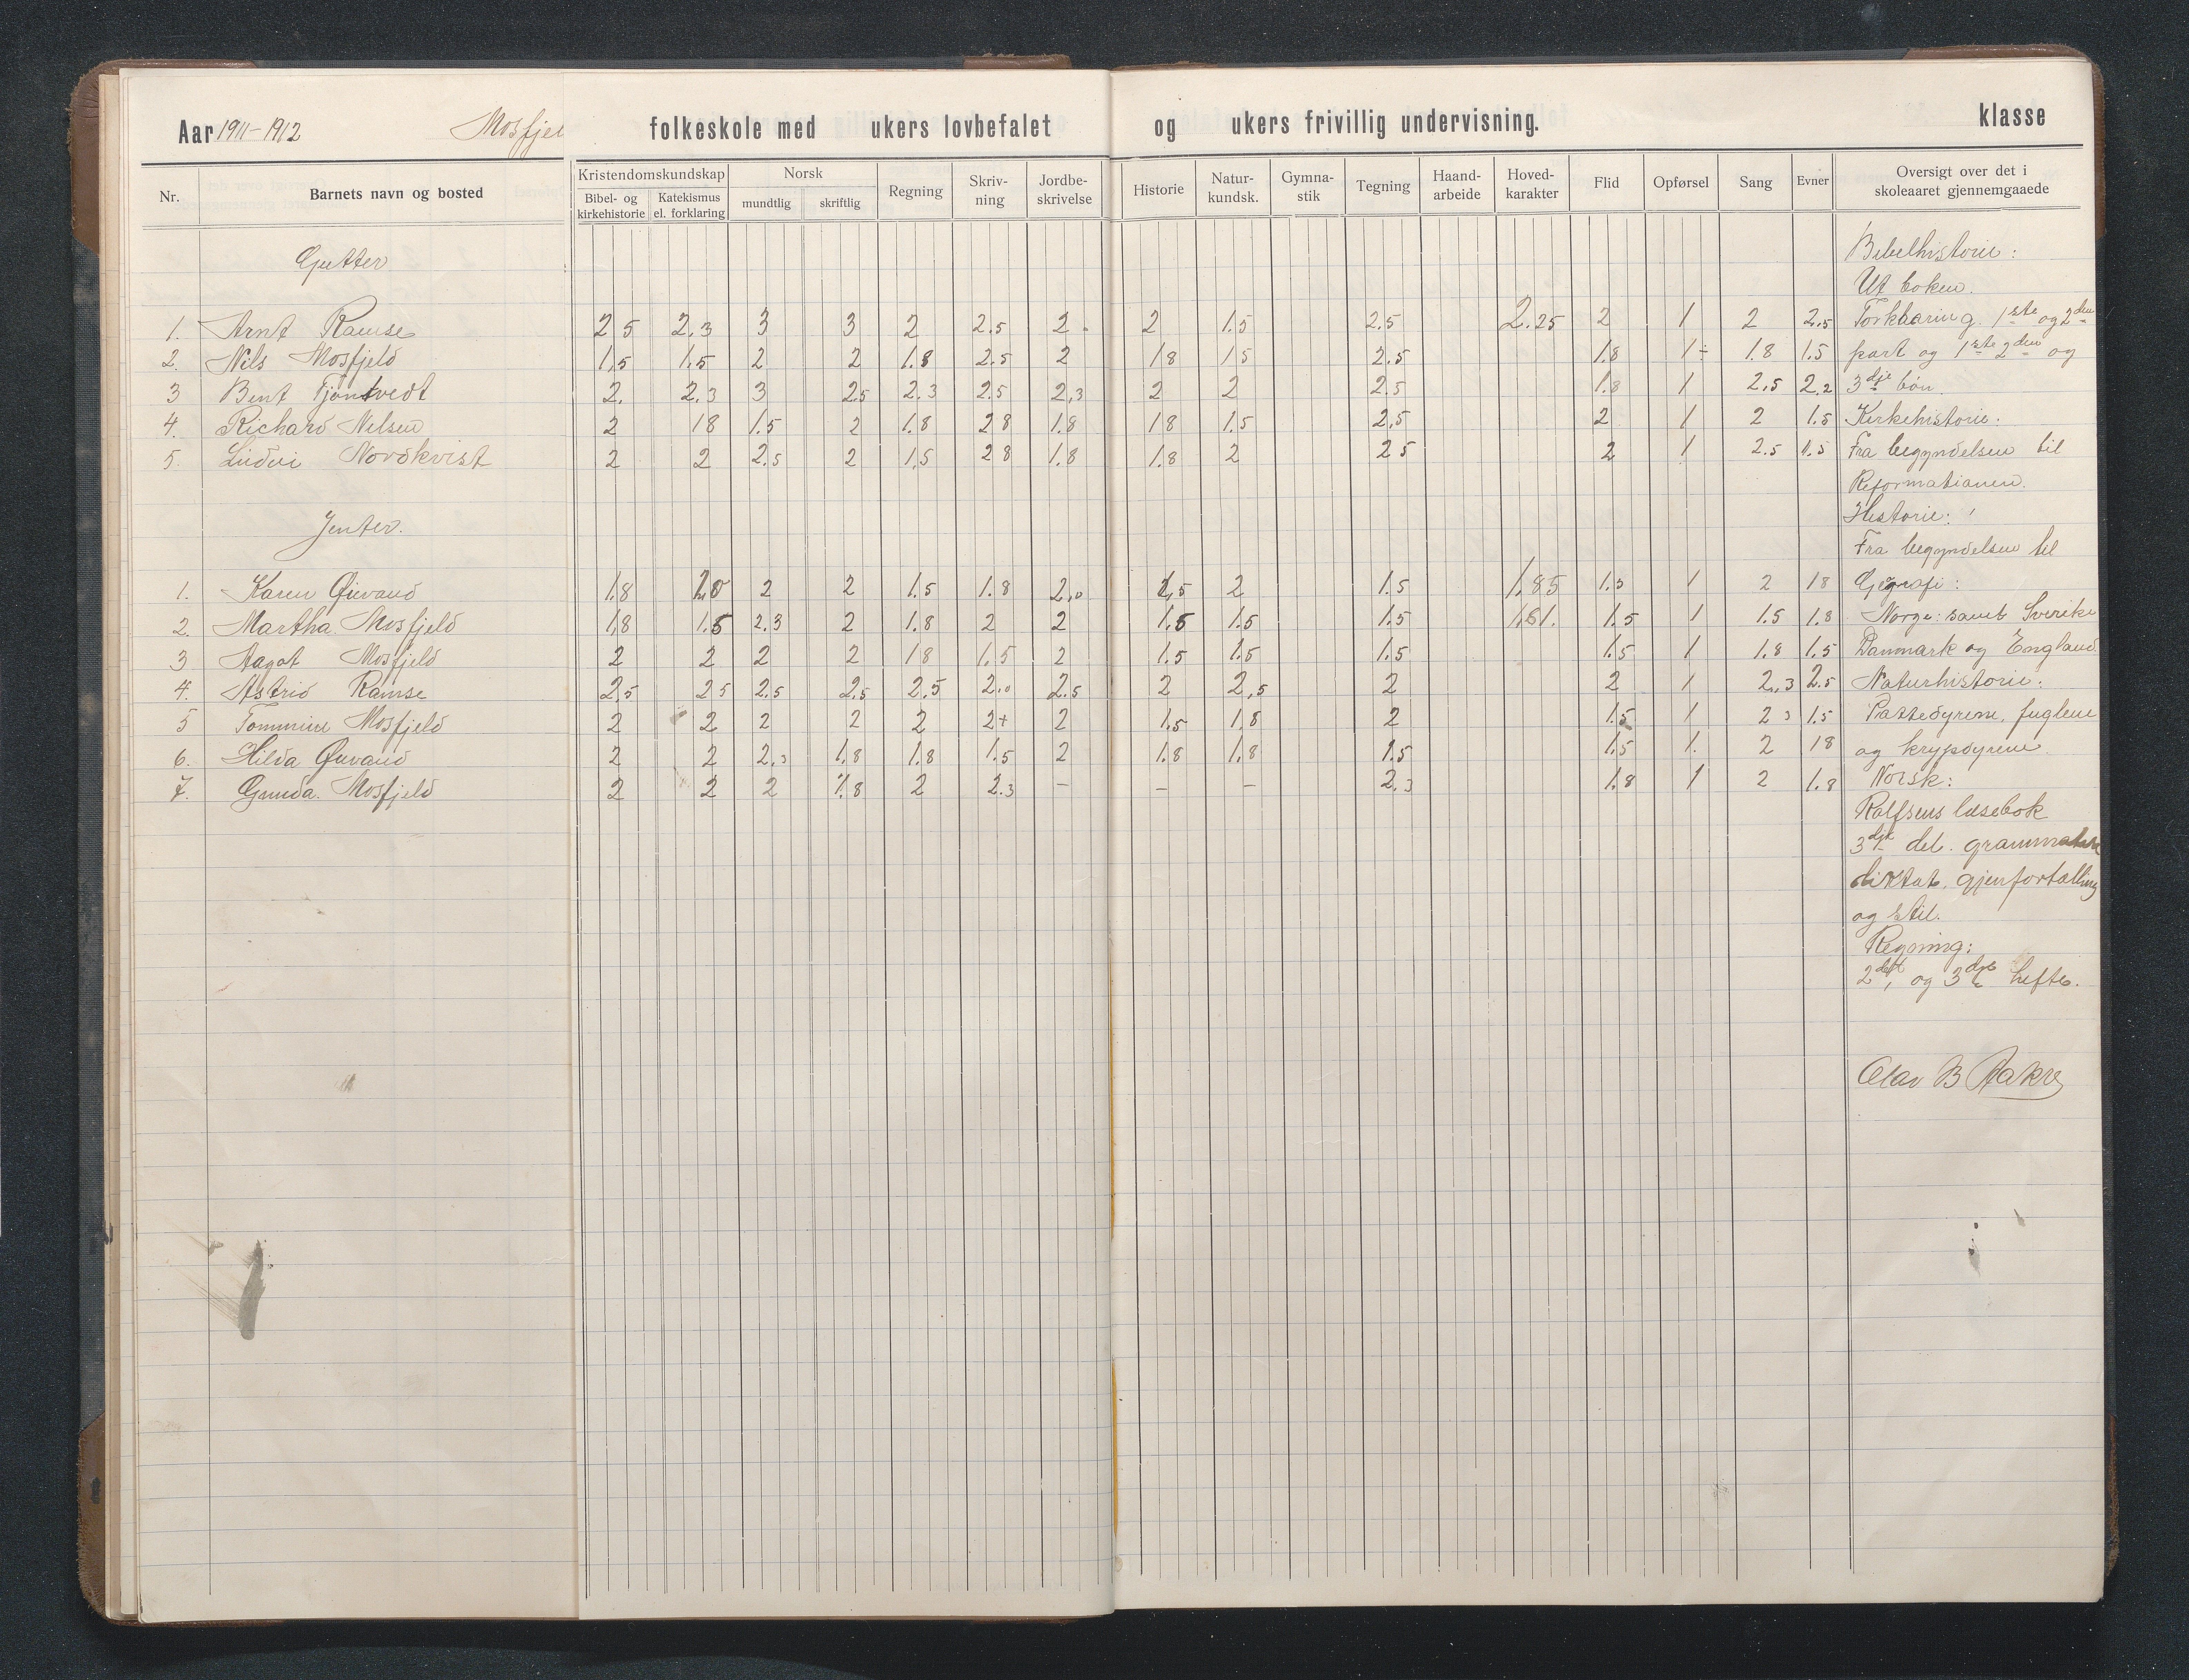 Aar 1911-1912 Mosfjel folkeskole med ukers lovbefalet og ukers frivillig undervisning. klasse
Nr. Barnets navn og bosted Kristendomskundskap Bibel- og kirkehistorie Katekismus el. forklaring Norsk mundtlig skriftlig Regning Skriv-ning Jordbe-skrivelse Historie Natur-kundsk. Gymna-stik Tegning Haand-arbeide Hoved-karakter Flid Opførsel Sang Evner Oversigt over det i skoleaaret gjennemgaaede
Gutter
1. Arnt Ramse 2 5 2.3 3 3 2 2.5 2. 2 1.5 2.5 2.25 2 1 2 2.5
2. Nils Mosfjeld 1,5 1.5 2 2 1.8 2.5 2 18 15 2.5 1.8 1÷ 1.8 1.5
3 Bent Tjøntvedt 2. 2.3 3 2.5 2.3 2.5 2,3 2 2 2.5 1.8 1 2,5 2,2
4. Richard Nilsen 2 18 1.5 2 1.8 28 1.8 18 1.5 2,5 2 1 2 1.5
5. Ludvi Nordkvist 2 2 2.5 2 1,5 28 1.8 1.8 2 25 2 1 2.5 1.5
Jenter.
1. Karen 1.8 2.0 2 2 1.5 1.8 2,0 1,5 2 1.5 1.85 1.5 1 2 18
2. Martha Mosfjeld 1,8 1.5 2.3 2 1.8 2 2 1.5 1.5 1.5 1.61. 1.5 1 1.5 1.8
3 Aagot Mosfjeld 2 2 2 2 18 1.5 2 1.5 1.5 1.5 1.5 1 1.8 1.5
4. Astrid Ramse 2,5 25 2.5 2.5 2,5 2.0 2.5 2 2,5 2 2 1 2,3 2.5
5 Tommine Mosfjeld 2 2 2 2 2 2+ 2 1.5 1.8 2 1.5 1 2 3 1.5
6. Hilda 2 2 2,3 1.8 1.8 1.5 2 1.8 1,8 1.5 1.5 1. 2 18
7. Gunda. Mosfjeld 2 2 2 1.8 2 2.3 – – – 2.3 1.8 1 2 1.8
Bibelhistorie:
Ut boken.
Forklaring. 1ste og 2den
part og 1ste 2den og
3dje bøn.
Kirkehistorie:
Fra begyndelsen til
Reformationen.
Historie:
Fra begyndelsen til
Geografi:
Norge: samt Sverike
Danmark og England
Naturhistorie:
Pattedyrene, fuglene
og krypdyrene.
Norsk:
Rolfsens læsebok
3dje del. grammatik
diktat, gjenfortælling
og stil.
Regning:
2det, og 3dje hefte.
Olav B Aakre